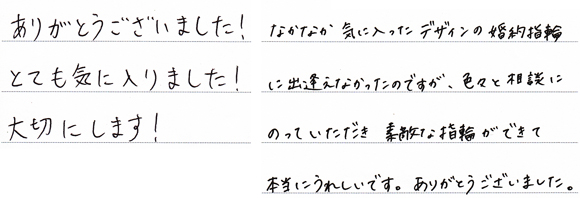 ありがとうございました!
とても気に入りました!
大切にします!
なかなか 気に入った デザインの 婚約指輪
に出逢えなかったのですが、色々と相談に
のっていただき 素敵な指輪ができて
本当にうれしいです。ありがとうございました。